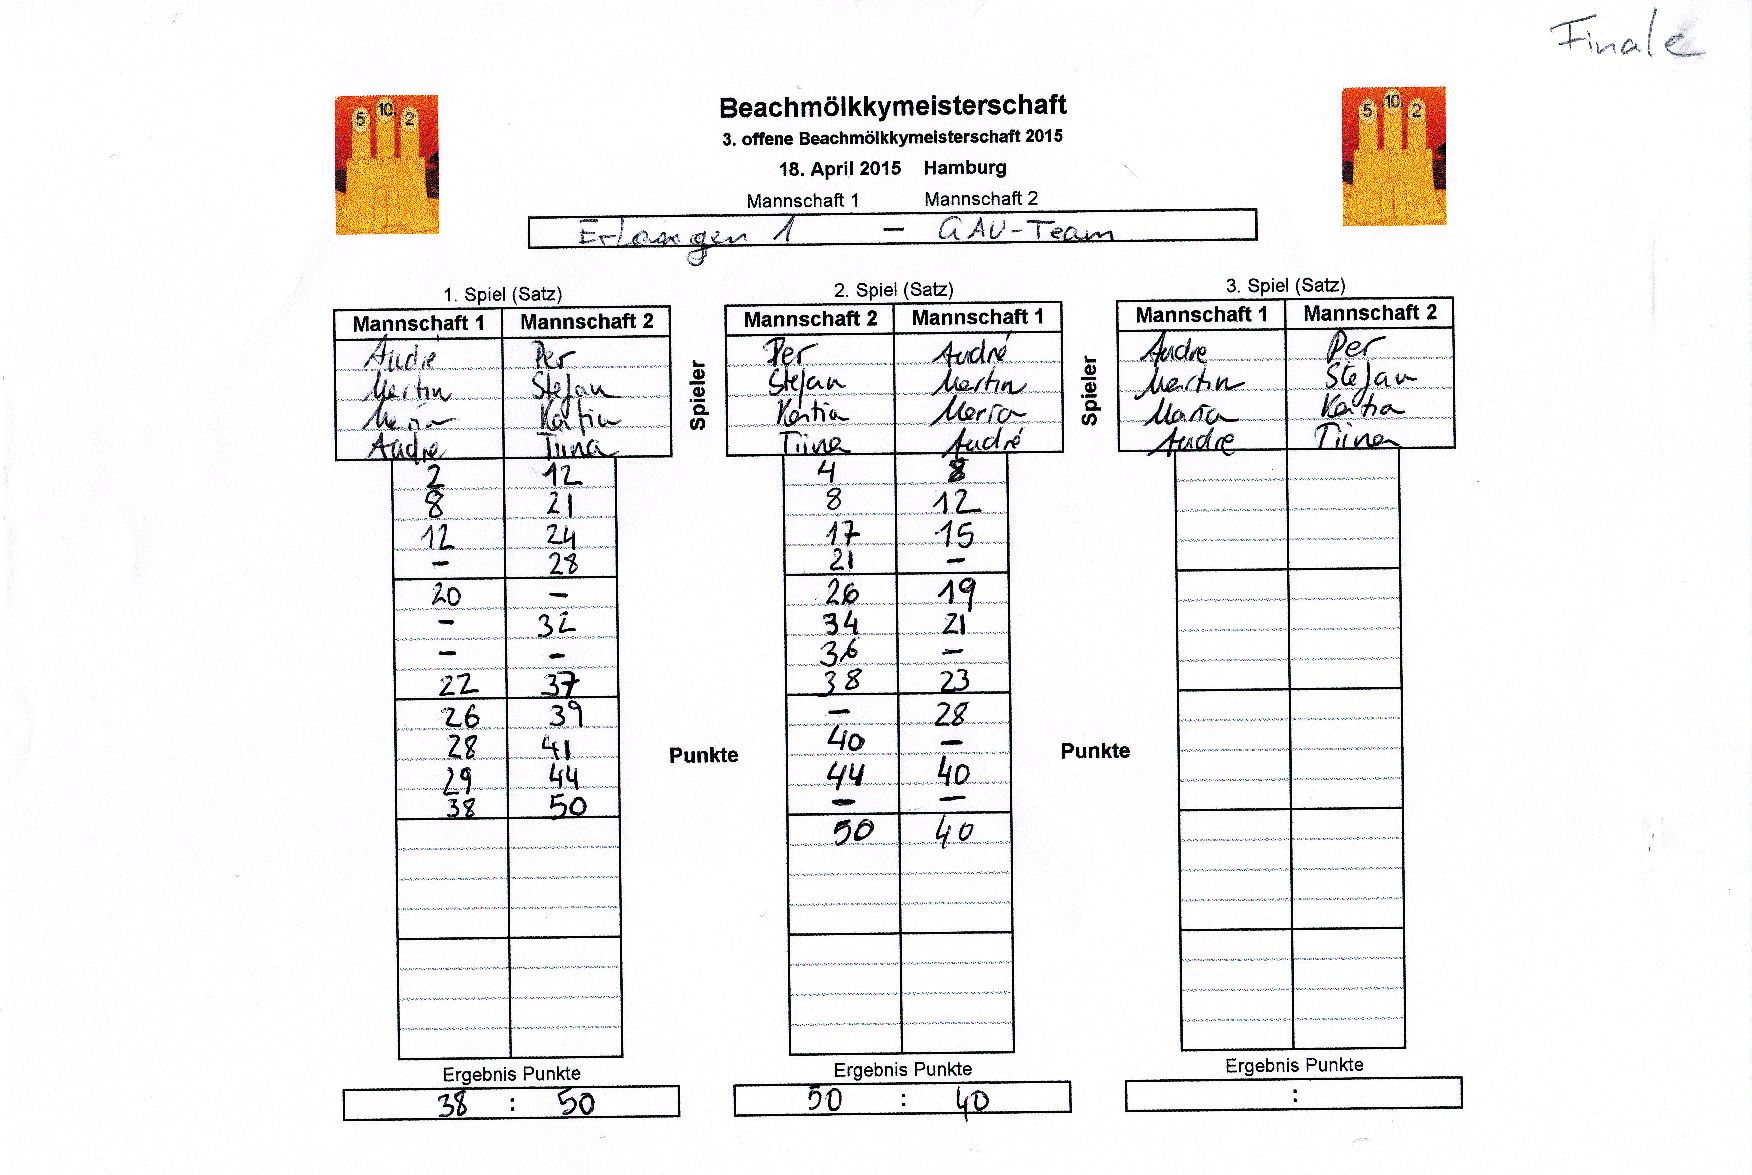 Finale
5 10 2
5 10 2
Beachmölkkymeisterschaft
3. offene Beachmölkkymeisterschaft 2015
18. April 2015 Hamburg
Mannschaft 1 Mannschaft 2
Erlangen 1 – GAU-Team
1. Spiel (Satz)
Mannschaft 1 Mannschaft 2
Andre Per
Martin Stefan
Maria Katia
Andre Tiina
2 12
8 21
12 24
– 28
20 –
– 32
– –
22 37
26 39
28 41
29 44
38 50
Ergebnis Punkte
38 : 50
Spieler
Punkte
2. Spiel (Satz)
Mannschaft 2 Mannschaft 1
Per André
Stefan Martin
Katia Maria
Tiina André
4 8
8 12
17 15
21 –
26 19
34 21
36 –
38 23
– 28
40 –
44 40
– –
50 40
Ergebnis Punkte
50 : 40
Spieler
Punkte
3. Spiel (Satz)
Mannschaft 1 Mannschaft 2
Andre Per
Martin Stefan
Maria Katia
Andre Tiina
Ergebnis Punkte
: